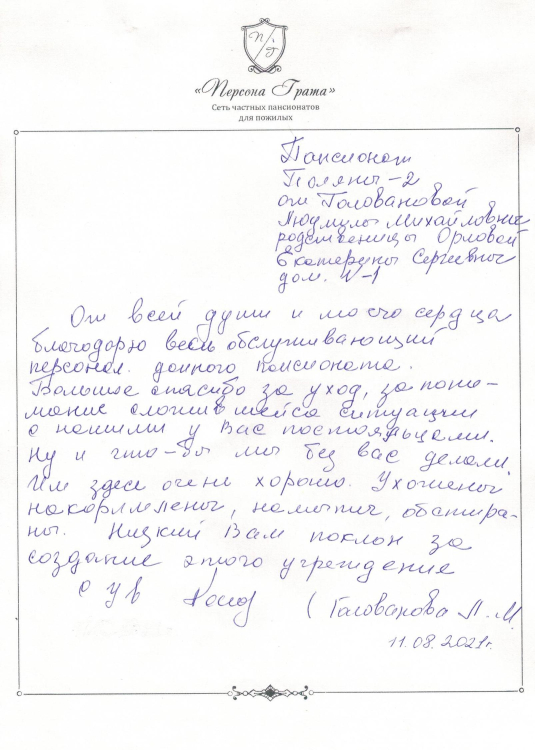 П/Г
«Персона Грата»
Сеть частных пансионатов
для пожилых
Пансионат
Поляны-2
от Головановой
Людмилы Михайловны
родственницы Орловой
Екатерины Сергеевны
дом. N-1
От всей души и моего сердца
благодарю весь обслуживающий
персонал данного пансионата.
Большое спасибо за уход, за пони-
мание сложившейся ситуации
с нашими у Вас постояльцами.
Ну и что-бы мы без вас делали.
Им здесь очень хорошо. Ухожены
накормлены, намыты, обстира-
ны. Низкий Вам поклон за
создание этого учреждение
с ув (Голованова Л. М.
11.08.2021г.